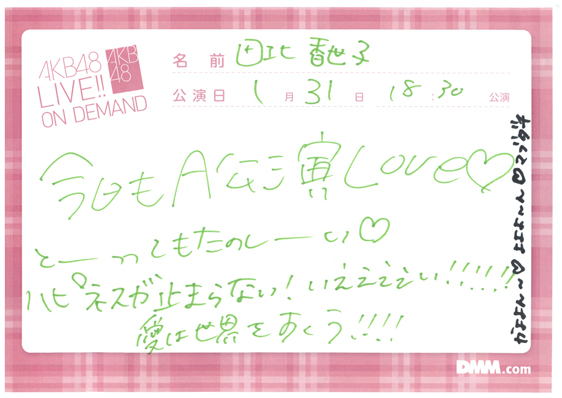 AKB48
LIVE!!
ON DEMAND
AKB
48
名前 田北香世子
公演日 1月31日 18:30 公演
今日もA公演Love♡
とーってもたのしーい♡
ハピネスが止まらない!いえええい!!!!!!
愛は世界をすくう!!!!
DMM.com